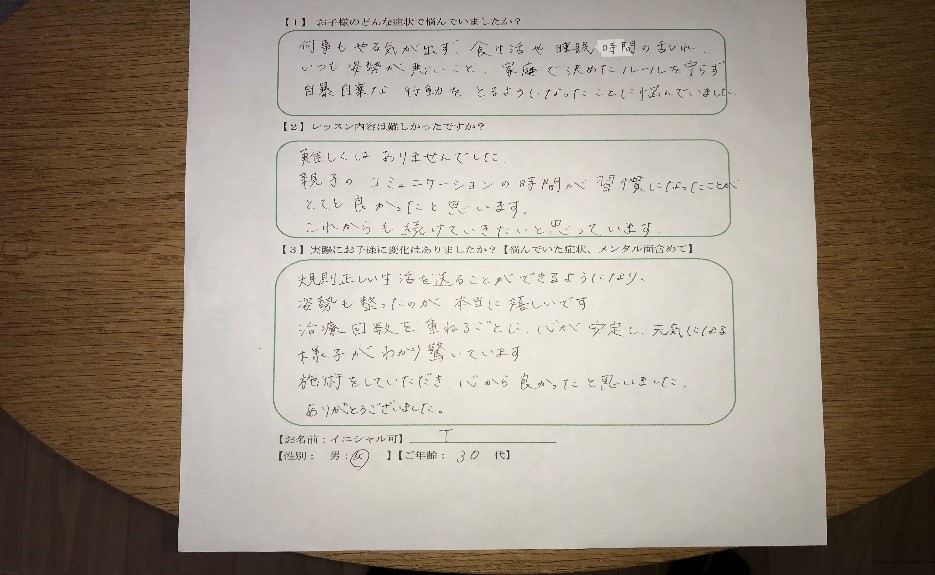 【1】 お子様のどんな症状で悩んでいましたか？
何事もやる気が出ず、食生活や睡眠時間の乱れ、
いつも姿勢が悪いこと、家庭で決めたルールを守らず
自暴自棄な行動をとるようになったことに悩んでいました。
【2】レッスン内容は難しかったですか？
難しくはありませんでした。
親子のコミュニケーションの時間が習慣になったことが
とても良かったと思います。
これからも続けていきたいと思っています。
【3】実際にお子様に変化はありましたか？【悩んでいた症状、メンタル面含めて】
規則正しい生活を送ることができるようになり、
姿勢も整ったのが本当に嬉しいです。
治療回数を重ねるごとに、心が安定し、元気になる
様子がわかり驚いています。
施術をしていただき、心から良かったと思いました。
ありがとうございました。
【お名前：イニシャル可】 T
【性別： 男：女 】【ご年齢： 30 代】